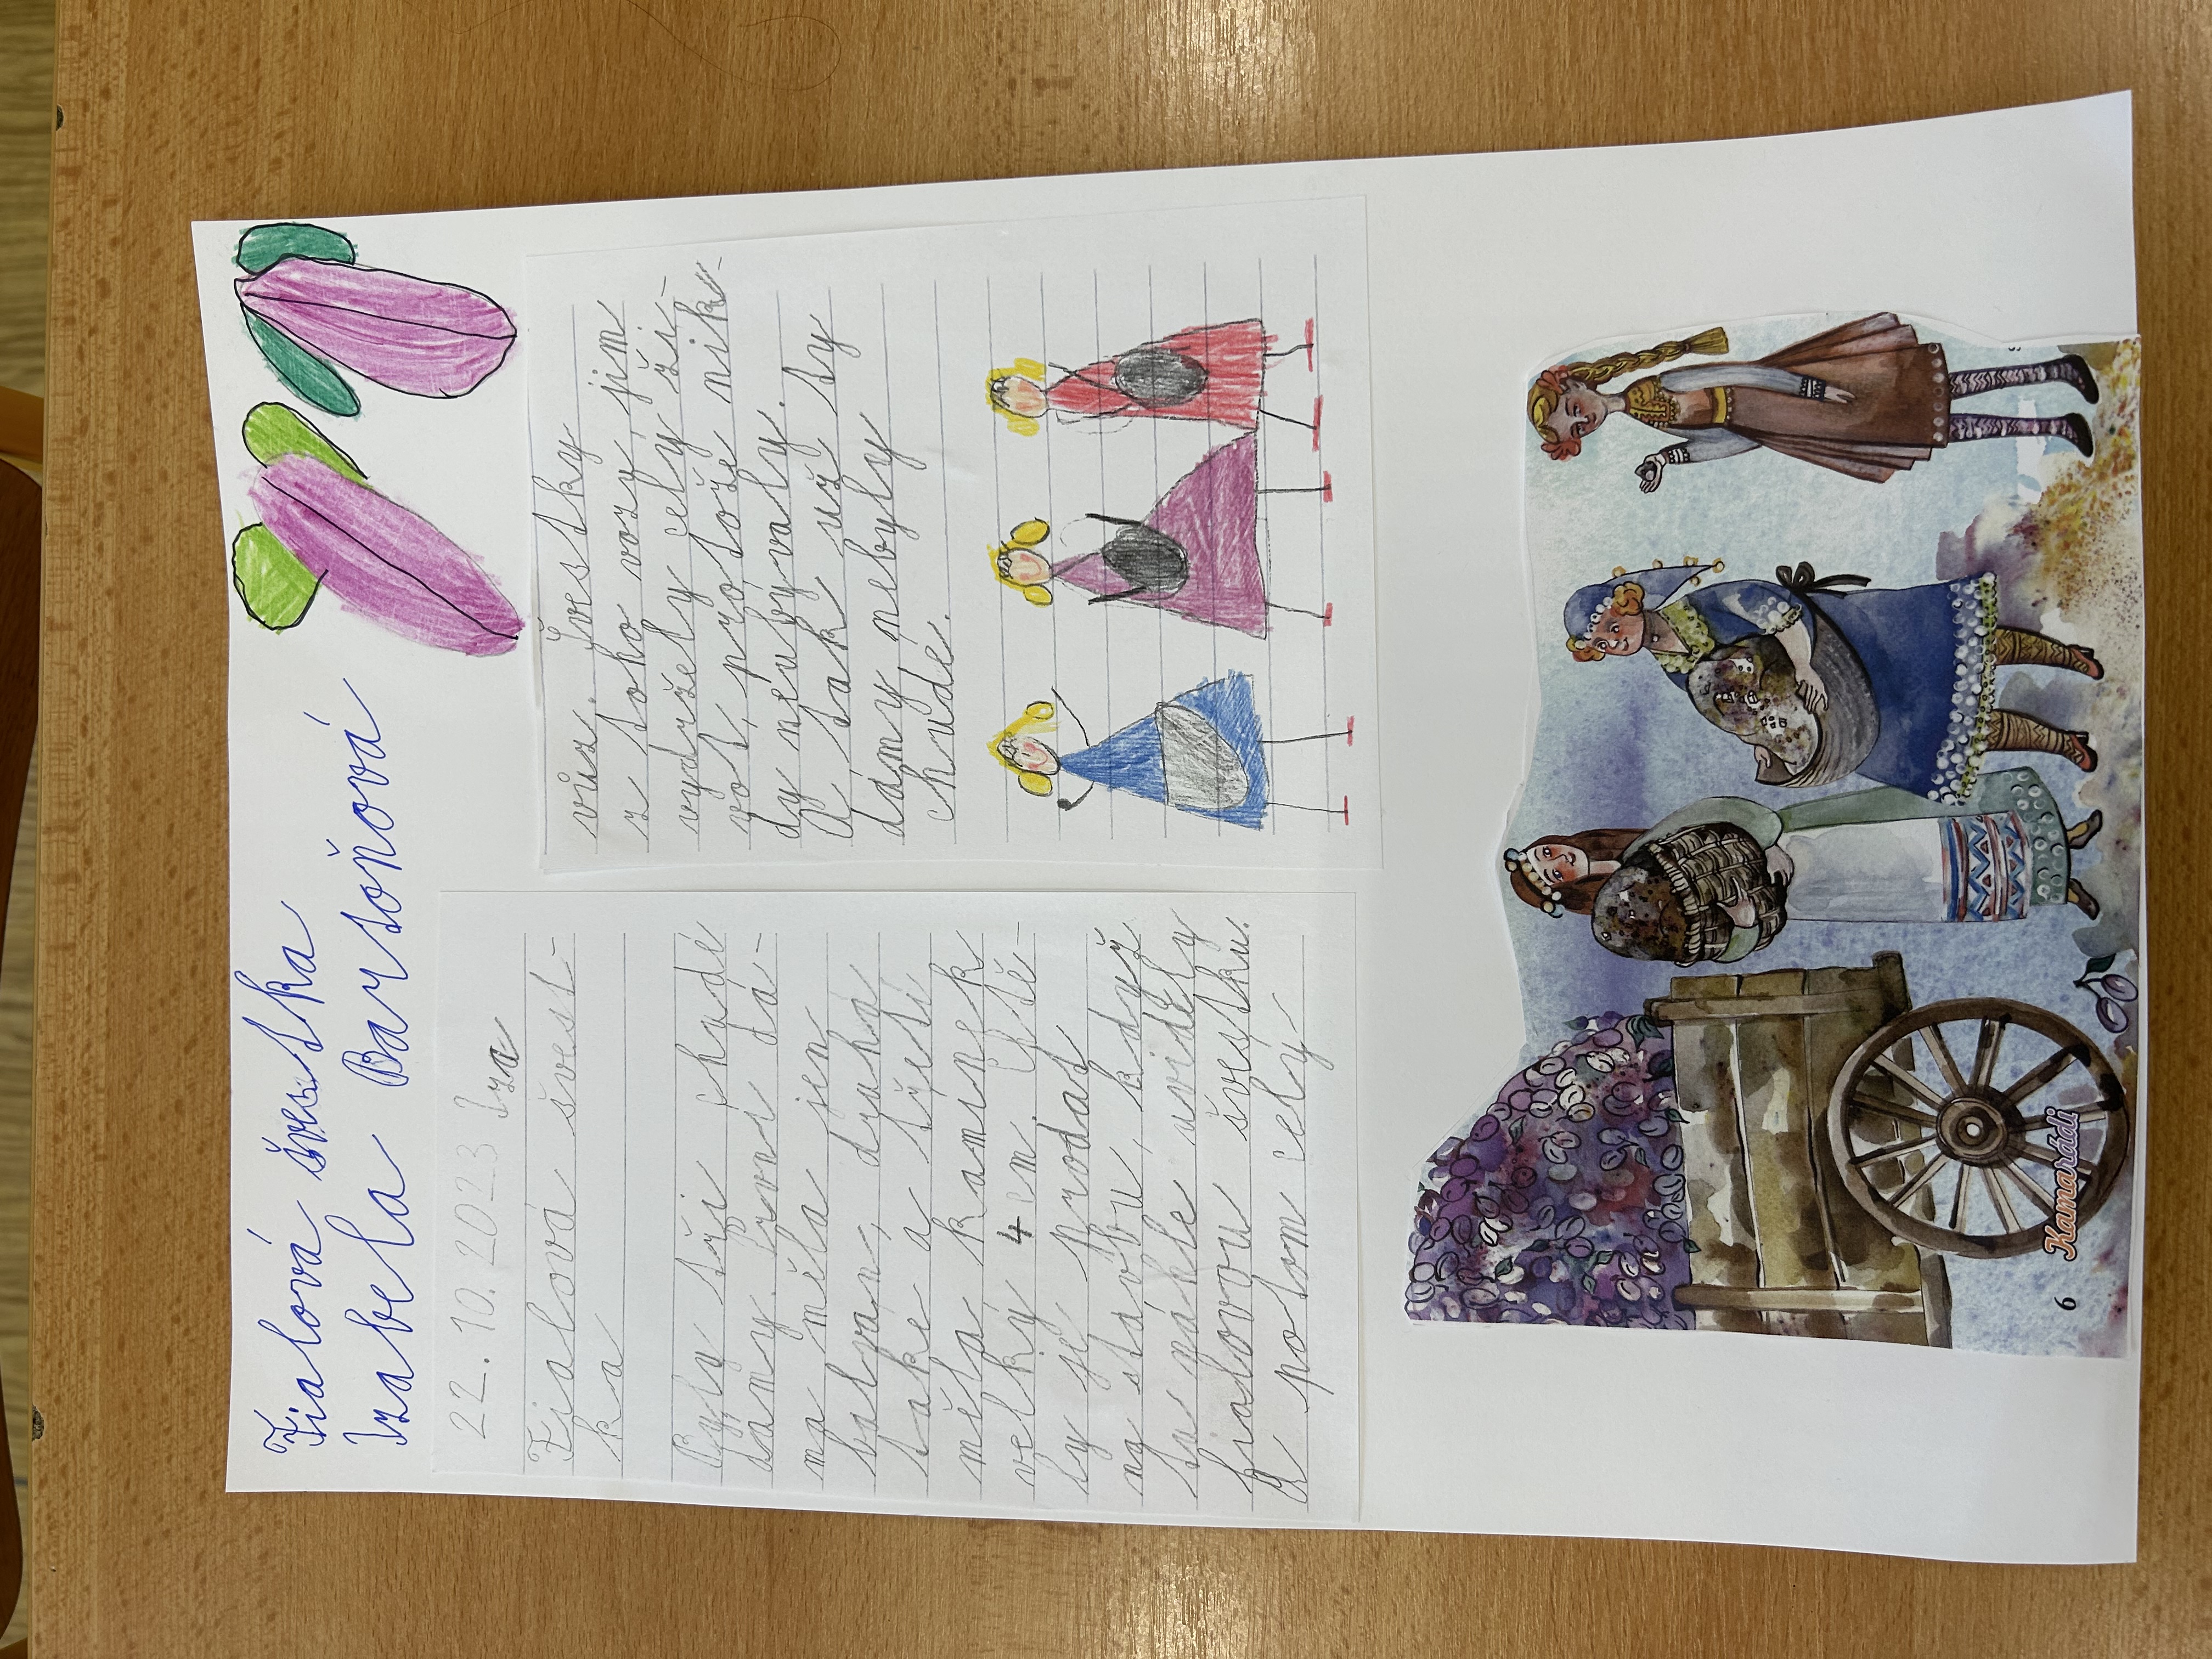 Fialová švestka
Izabela Bartoňová
22.10.2023 Iza
Fialová švest-
ka
Byly tři chudé
dámy. První dá-
ma měla jen
balvan, druhá
také a třetí
měla kamínek
velký 4 cm. Chtě-
ly je prodat
na stavbu, když
tu náhle uviděly
fialovou švestku.
A potom celý
vůz. Švestky
z toho vozu jim
vydržely celý ži-
vot, protože nik-
dy neubývaly.
A tak už ty
dámy nebyly
chudé.
Kamarádi
6